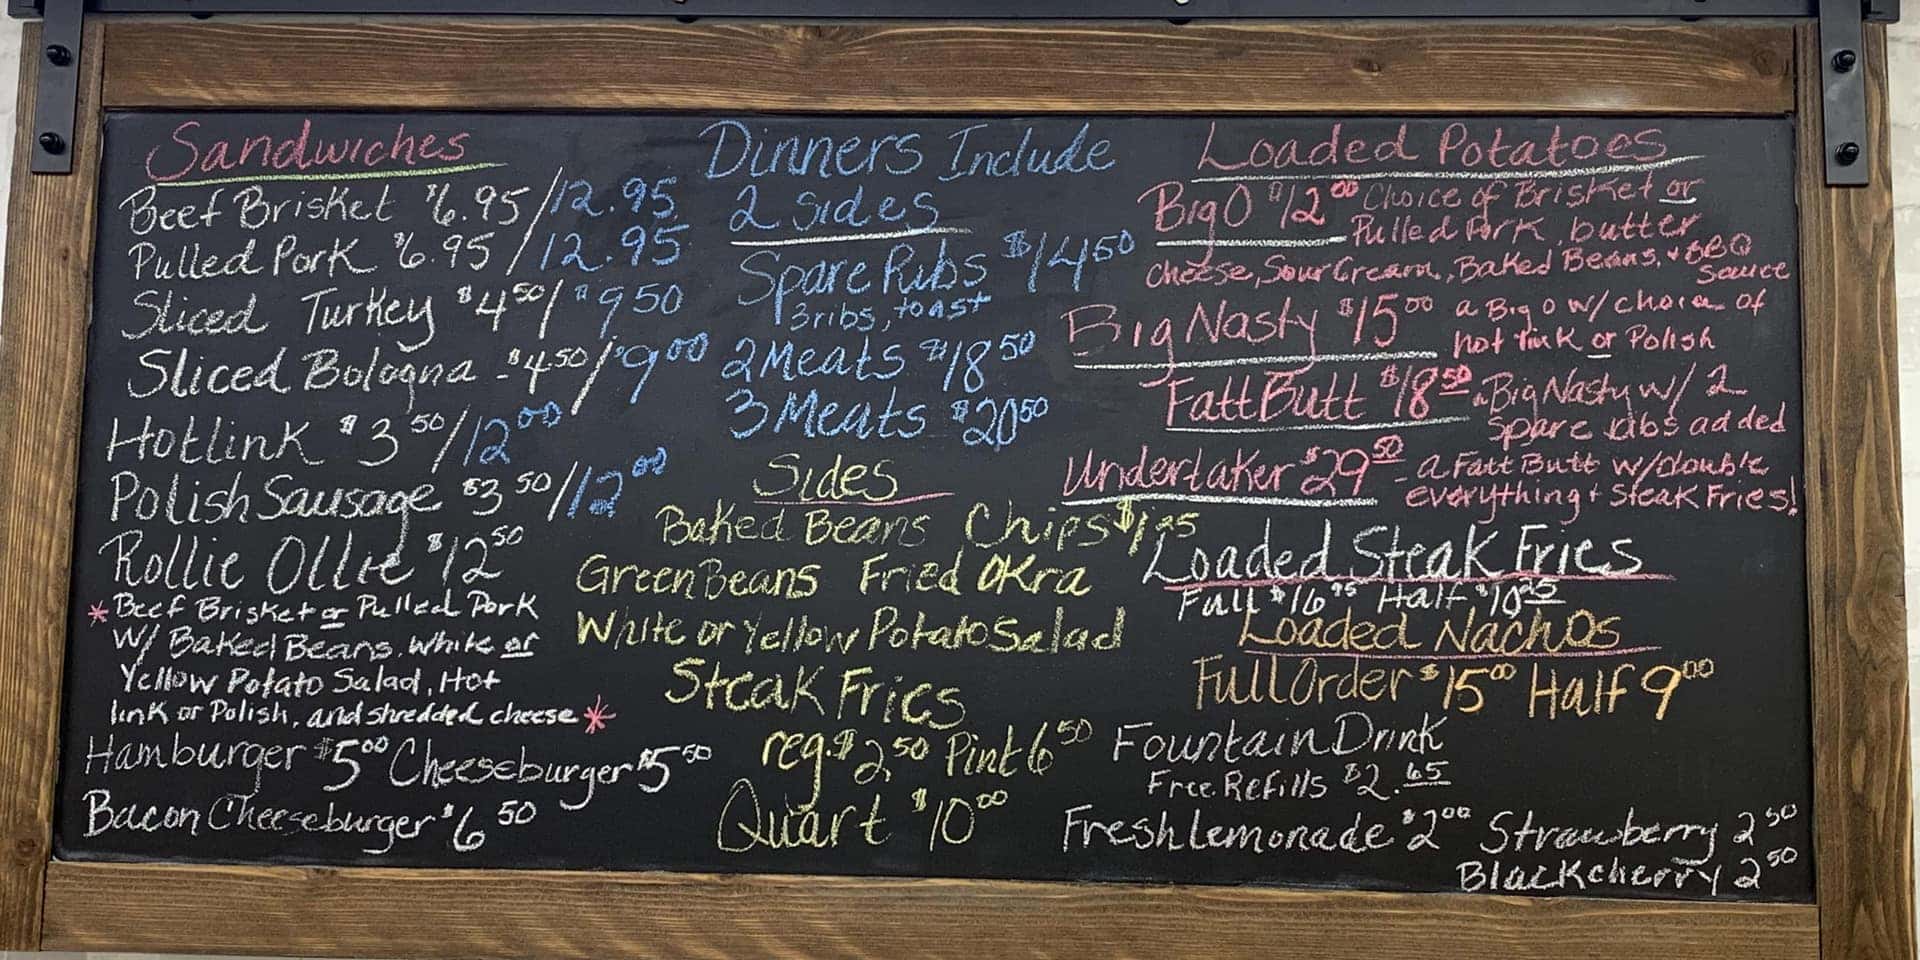 Sandwiches
Beef Brisket $6.95/12.95
Pulled Pork $6.95/12.95
Sliced Turkey $4.50/$9.50
Sliced Bologna - $4.50/$9.00
Hotlink $3.50/12.00
Polish Sausage $3.50/12.00
Rollie Ollie $12.50
* Beef Brisket or Pulled Pork
w/ Baked Beans, White or
Yellow Potato Salad, Hot
link or Polish, and shredded cheese *
Hamburger $5.00 Cheeseburger $5.50
Bacon Cheeseburger $6.50
Dinners Include
2 Sides
Spare Ribs $14.50
3 ribs, toast
2 Meats $18.50
3 Meats $20.50
Sides
Baked Beans Chips $1.25
Green Beans Fried OKra
White or Yellow Potato Salad
Steak Fries
reg. $2.50 Pint 6.50
Quart $10.00
Loaded Potatoes
Big O $12.00 Choice of Brisket or
Pulled Pork, butter
cheese, Sour Cream, Baked Beans, + BBQ
Sauce
Big Nasty $15.00 a Big O w/ choice of
hot link or Polish
Fatt Butt $18.50 - a Big Nasty w/ 2
Spare ribs added
Undertaker $29.50 - a Fatt Butt w/double
everything + Steak Fries!
Loaded Steak Fries
Full $16.95 Half $10.25
Loaded Nachos
Full Order $15.00 Half 9.00
Fountain Drink
Free Refills $2.65
Fresh Lemonade $2.00 Strawberry 2.50
Blackcherry 2.50